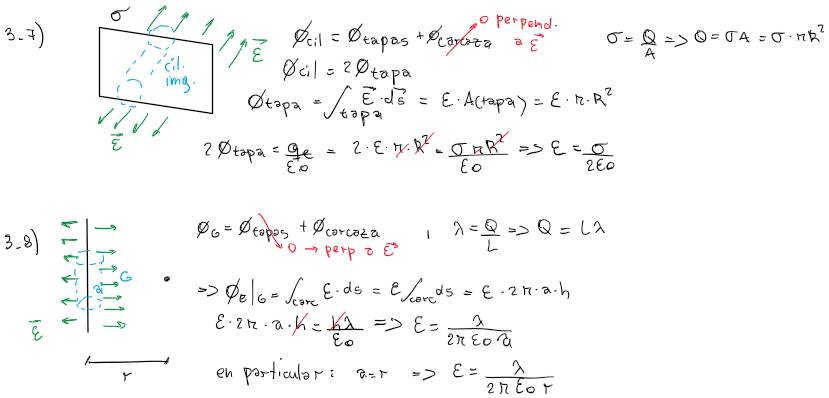 3-7) σ
E⃗
cil. img.
E⃗
Øcil = Øtapas + Øcarcaza 0 perpend. a E⃗
σ = Q/A => Q = σA = σ·πR²
Øcil = 2Øtapa
Øtapa = ∫tapa E⃗·ds⃗ = E·A(tapa) = E·π·R²
2Øtapa = qe/ε0 = 2·E·π·R² = σπR²/ε0 => E = σ/2ε0
3-8)
G
a
E⃗
r
ØG = Øtapas + Øcarcaza , λ = Q/L => Q = Lλ
0 → perp a E⃗
=> ØE|G = ∫carc E·ds = E∫carc ds = E·2π·a·h
E·2π·a·h = hλ/ε0 => E = λ/2πε0a
en particular: a=r => E = λ/2πε0r